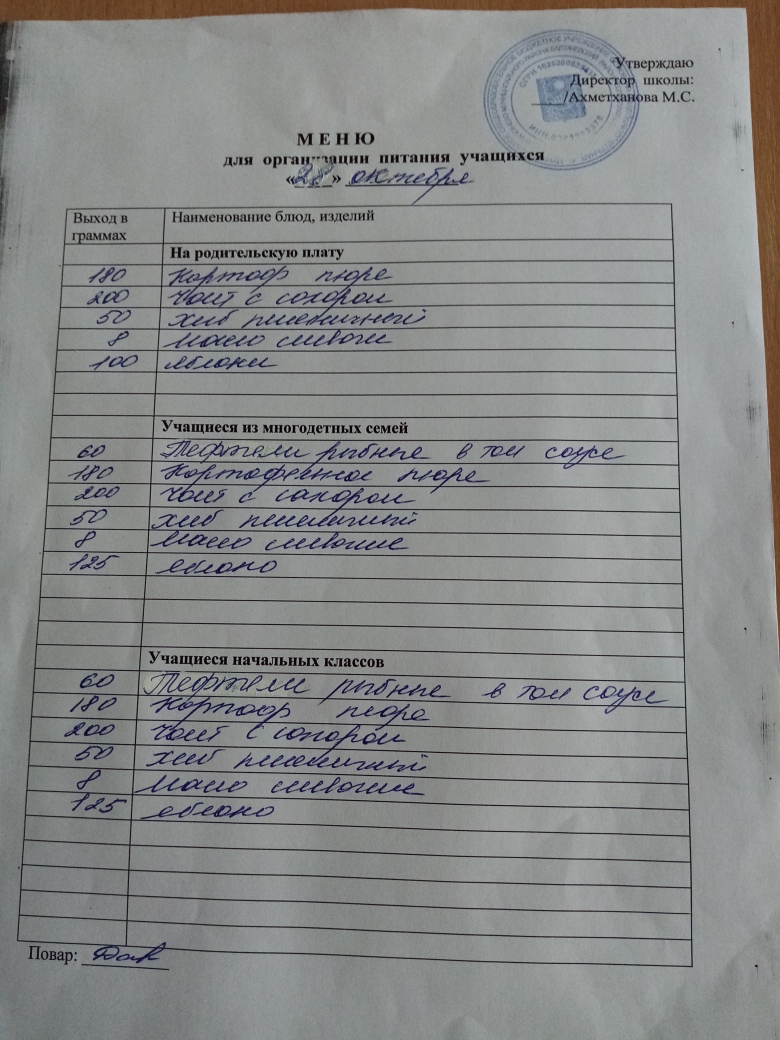 Утверждаю
Директор школы:
/Ахметханова М.С.
М Е Н Ю
для организации питания учащихся
«28» октября
Выход в граммах Наименование блюд, изделий
На родительскую плату
180 Картоф пюре
200 Чай с сахаром
50 хлеб пшеничный
8 масло сливочн
100 яблоки
Учащиеся из многодетных семей
60 Тефтели рыбные в том соусе
180 Картофельное пюре
200 Чай с сахаром
50 хлеб пшеничный
8 масло сливочное
125 яблоко
Учащиеся начальных классов
60 Тефтели рыбные в том соусе
180 Картоф пюре
200 Чай с сахаром
50 хлеб пшеничный
8 масло сливочное
125 яблоко
Повар: